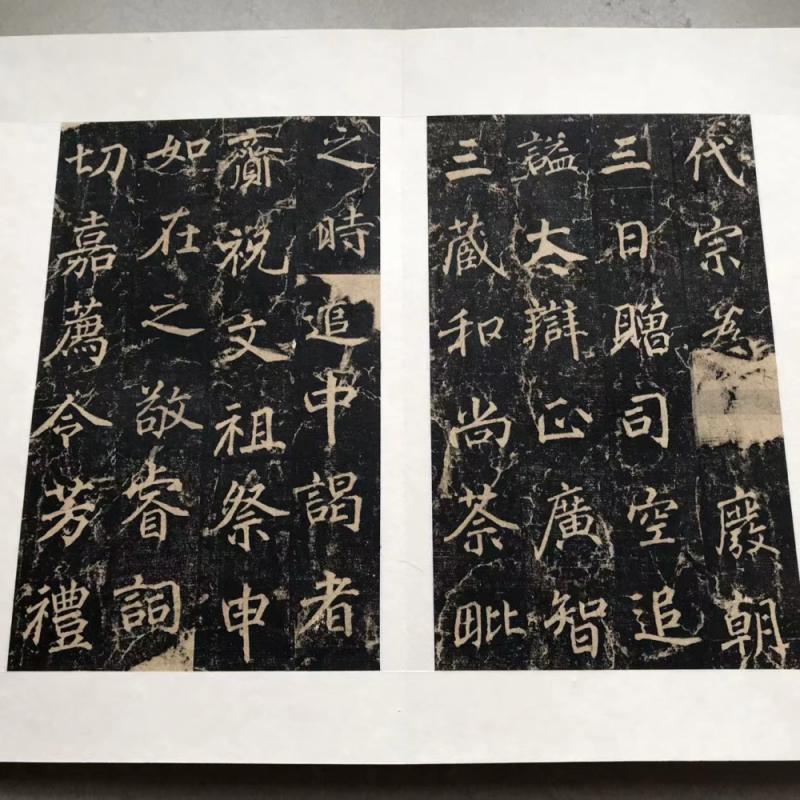 代宗為廢朝
三日贈司空追
謚大辯正廣智
三藏和尚荼毗
之時追中謁者
齎祝文祖祭申
如在之敬睿詞
切嘉薦令芳禮